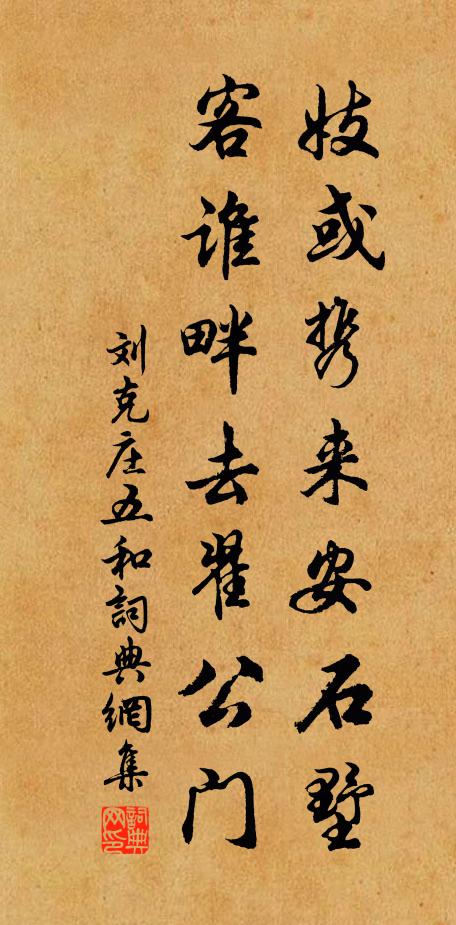 妓或携来安石墅
客谁畔去翟公门
刘克庄五和詞典網集
詞典网印